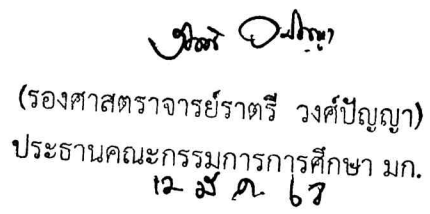 (รองศาสตราจารย์ราตรี วงศ์ปัญญา)
ประธานคณะกรรมการการศึกษา มก.